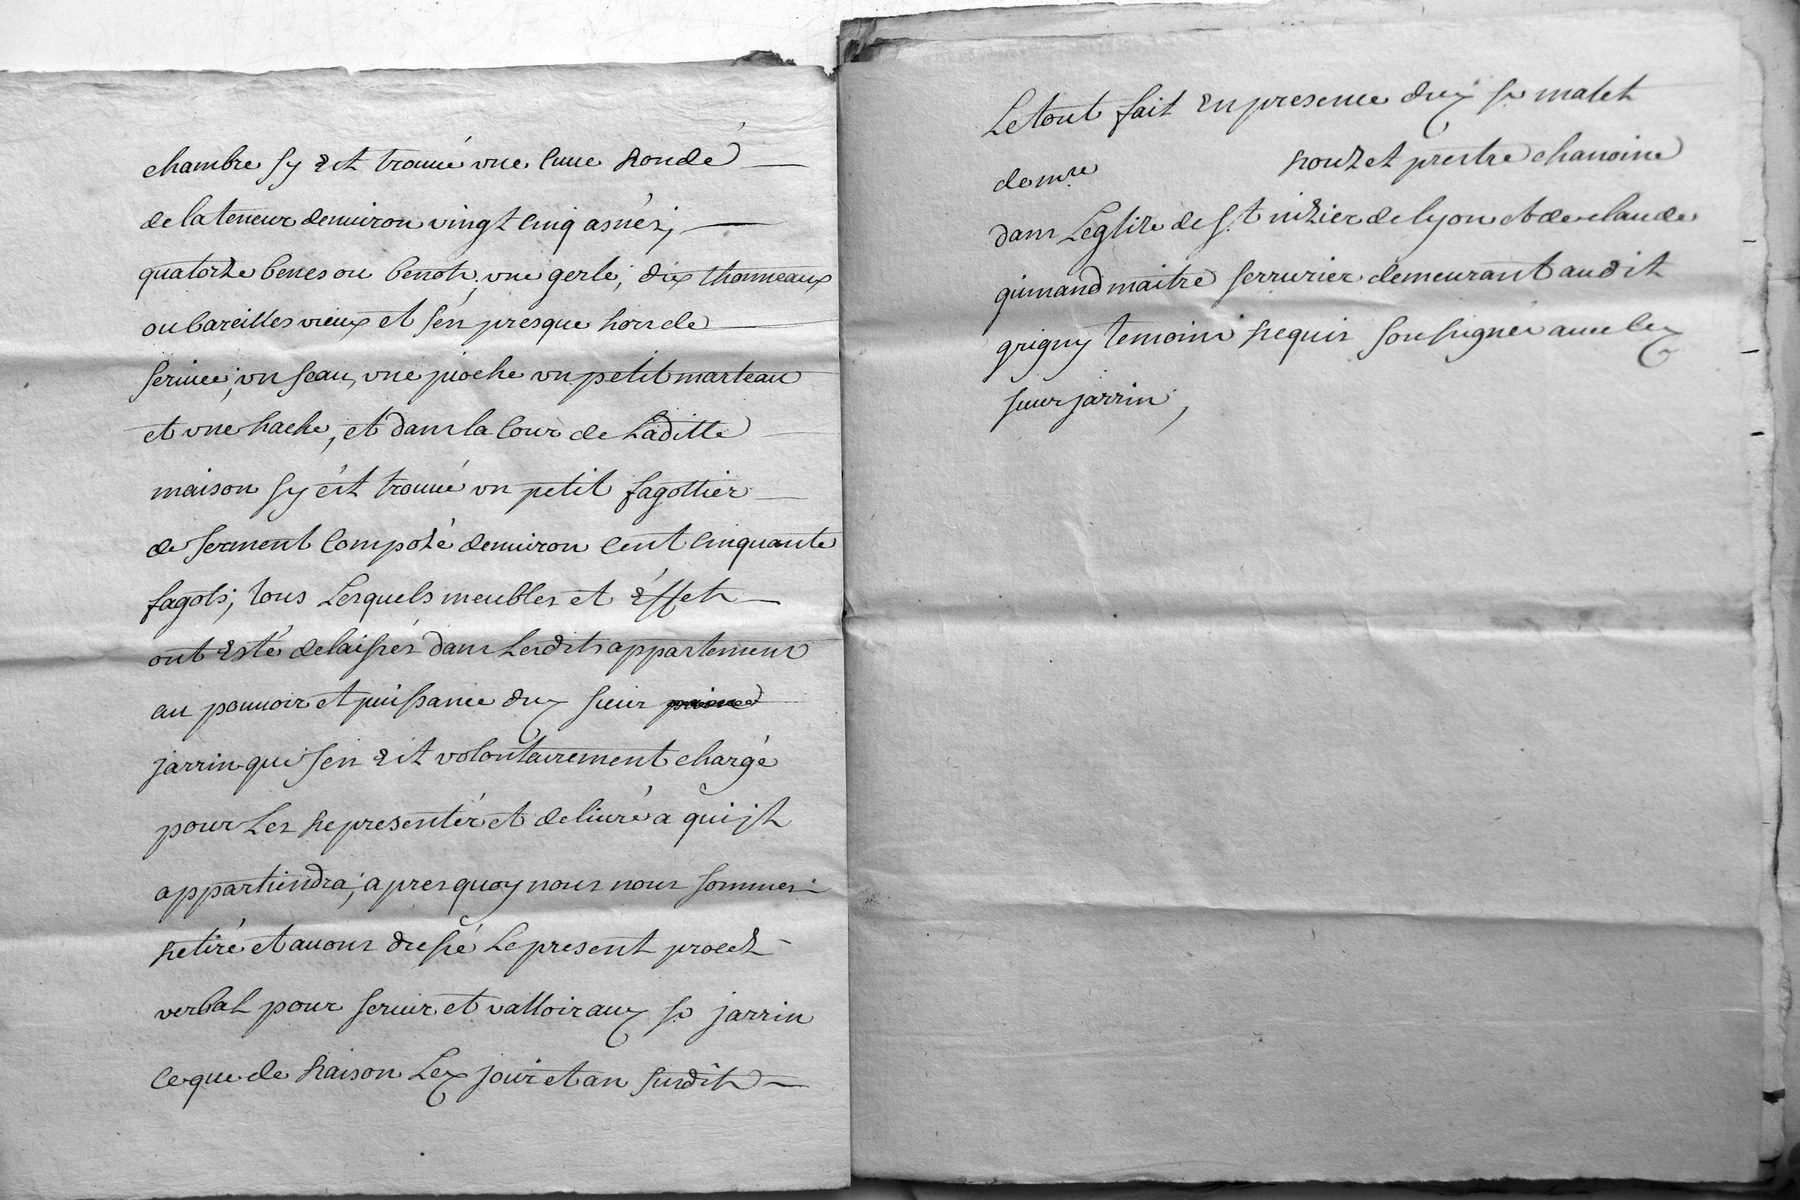 chambre sy est trouué vne cuue ronde
de la teneur denuiron vingt cinq asnés,
quatorze benes ou benots, vne gerle, dix thonneaux
ou bareilles vieux et sen presque hors de
seruice, vn seau, vne pioche vn petit marteau
et vne hache, et dans la cour de laditte
maison sy ést trouué vn petit fagottier
de serment composé denuiron cent cinquante
fagots, tous Lesquels meubles et éffets
ont esté delaissés dans Lesdits appartements
au pouuoir et puissance du sieur
jarrin qui sen est volontairement chargé
pour Les représentér et deliuré a qui jl
appartiendra, apres quoy nous nous sommes
retiré et auons dressé Le present procez
verbal pour seruir et valloir aux sr jarrin
ce que de raison Les jour et an susdits
Le tout fait en presence du sr matet
de mre rouzet prestre chanoine
dans Leglize de st nizier de lyon et de claude
guinand maitre serrurier demeurant audit
grigny temoins requis soussignés auec le
sieur jarrin,